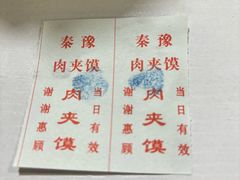 秦豫
肉夹馍
肉夹馍
当日有效
谢谢惠顾
秦豫
肉夹馍
肉夹馍
当日有效
谢谢惠顾